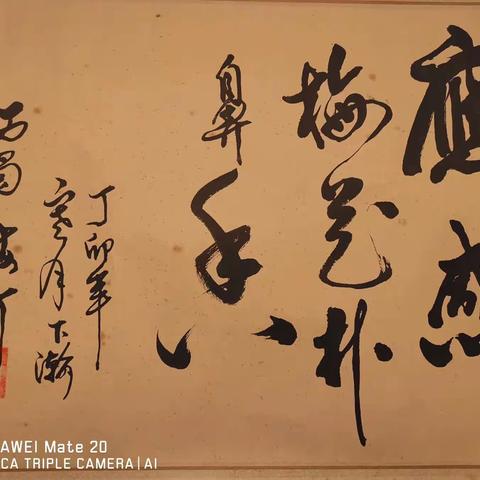 應
梅花扑
鼻香
丁卯年
寒月下瀚
西蜀
AWEI Mate 20
CA TRIPLE CAMERA | AI